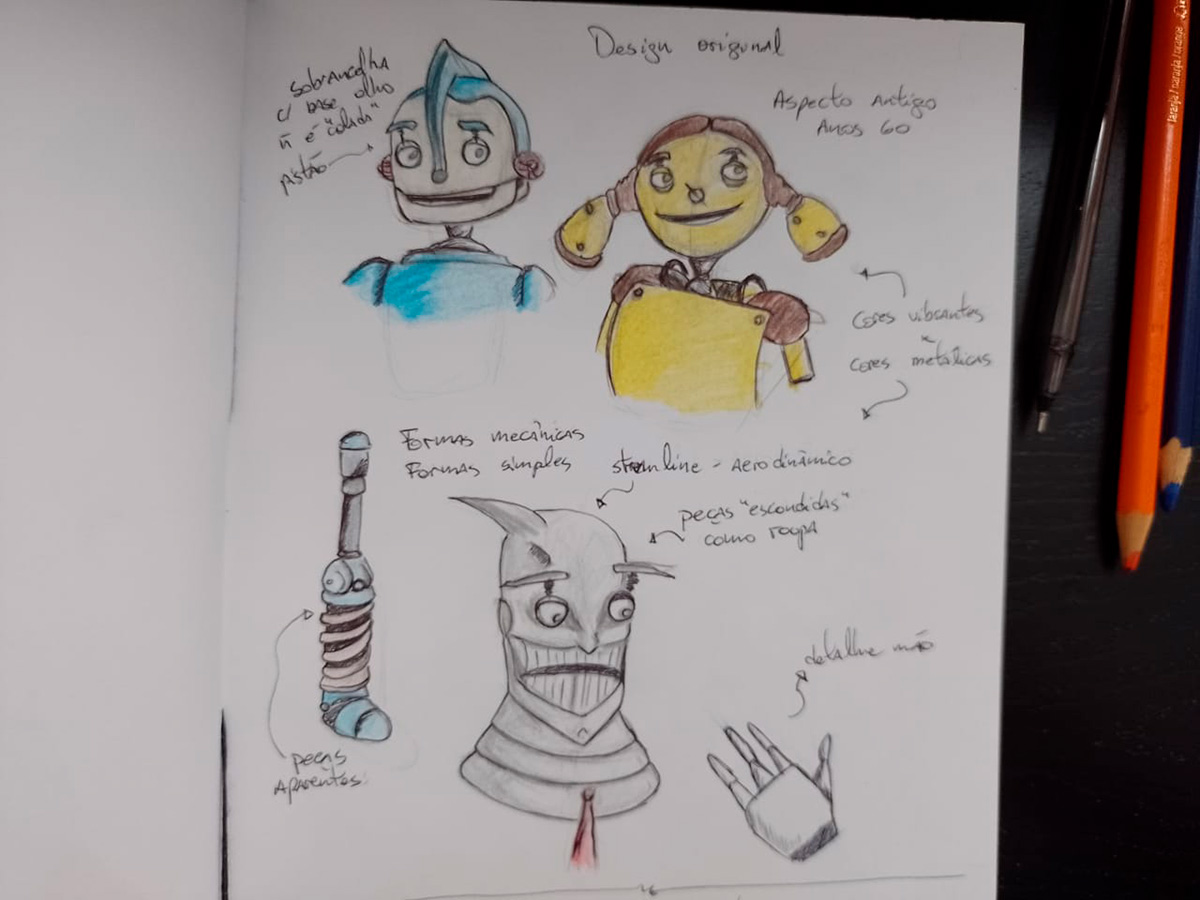 Design original
sobrancelha
c/ base olho
ñ é "colada"
pistão
Aspecto antigo
Anos 60
cores vibrantes
x
cores metálicas
Formas mecânicas
Formas simples
streamline - Aerodinâmico
peças "escondidas"
como roupa
detalhe mão
peças
Aparentes
laranja/naranja/orange